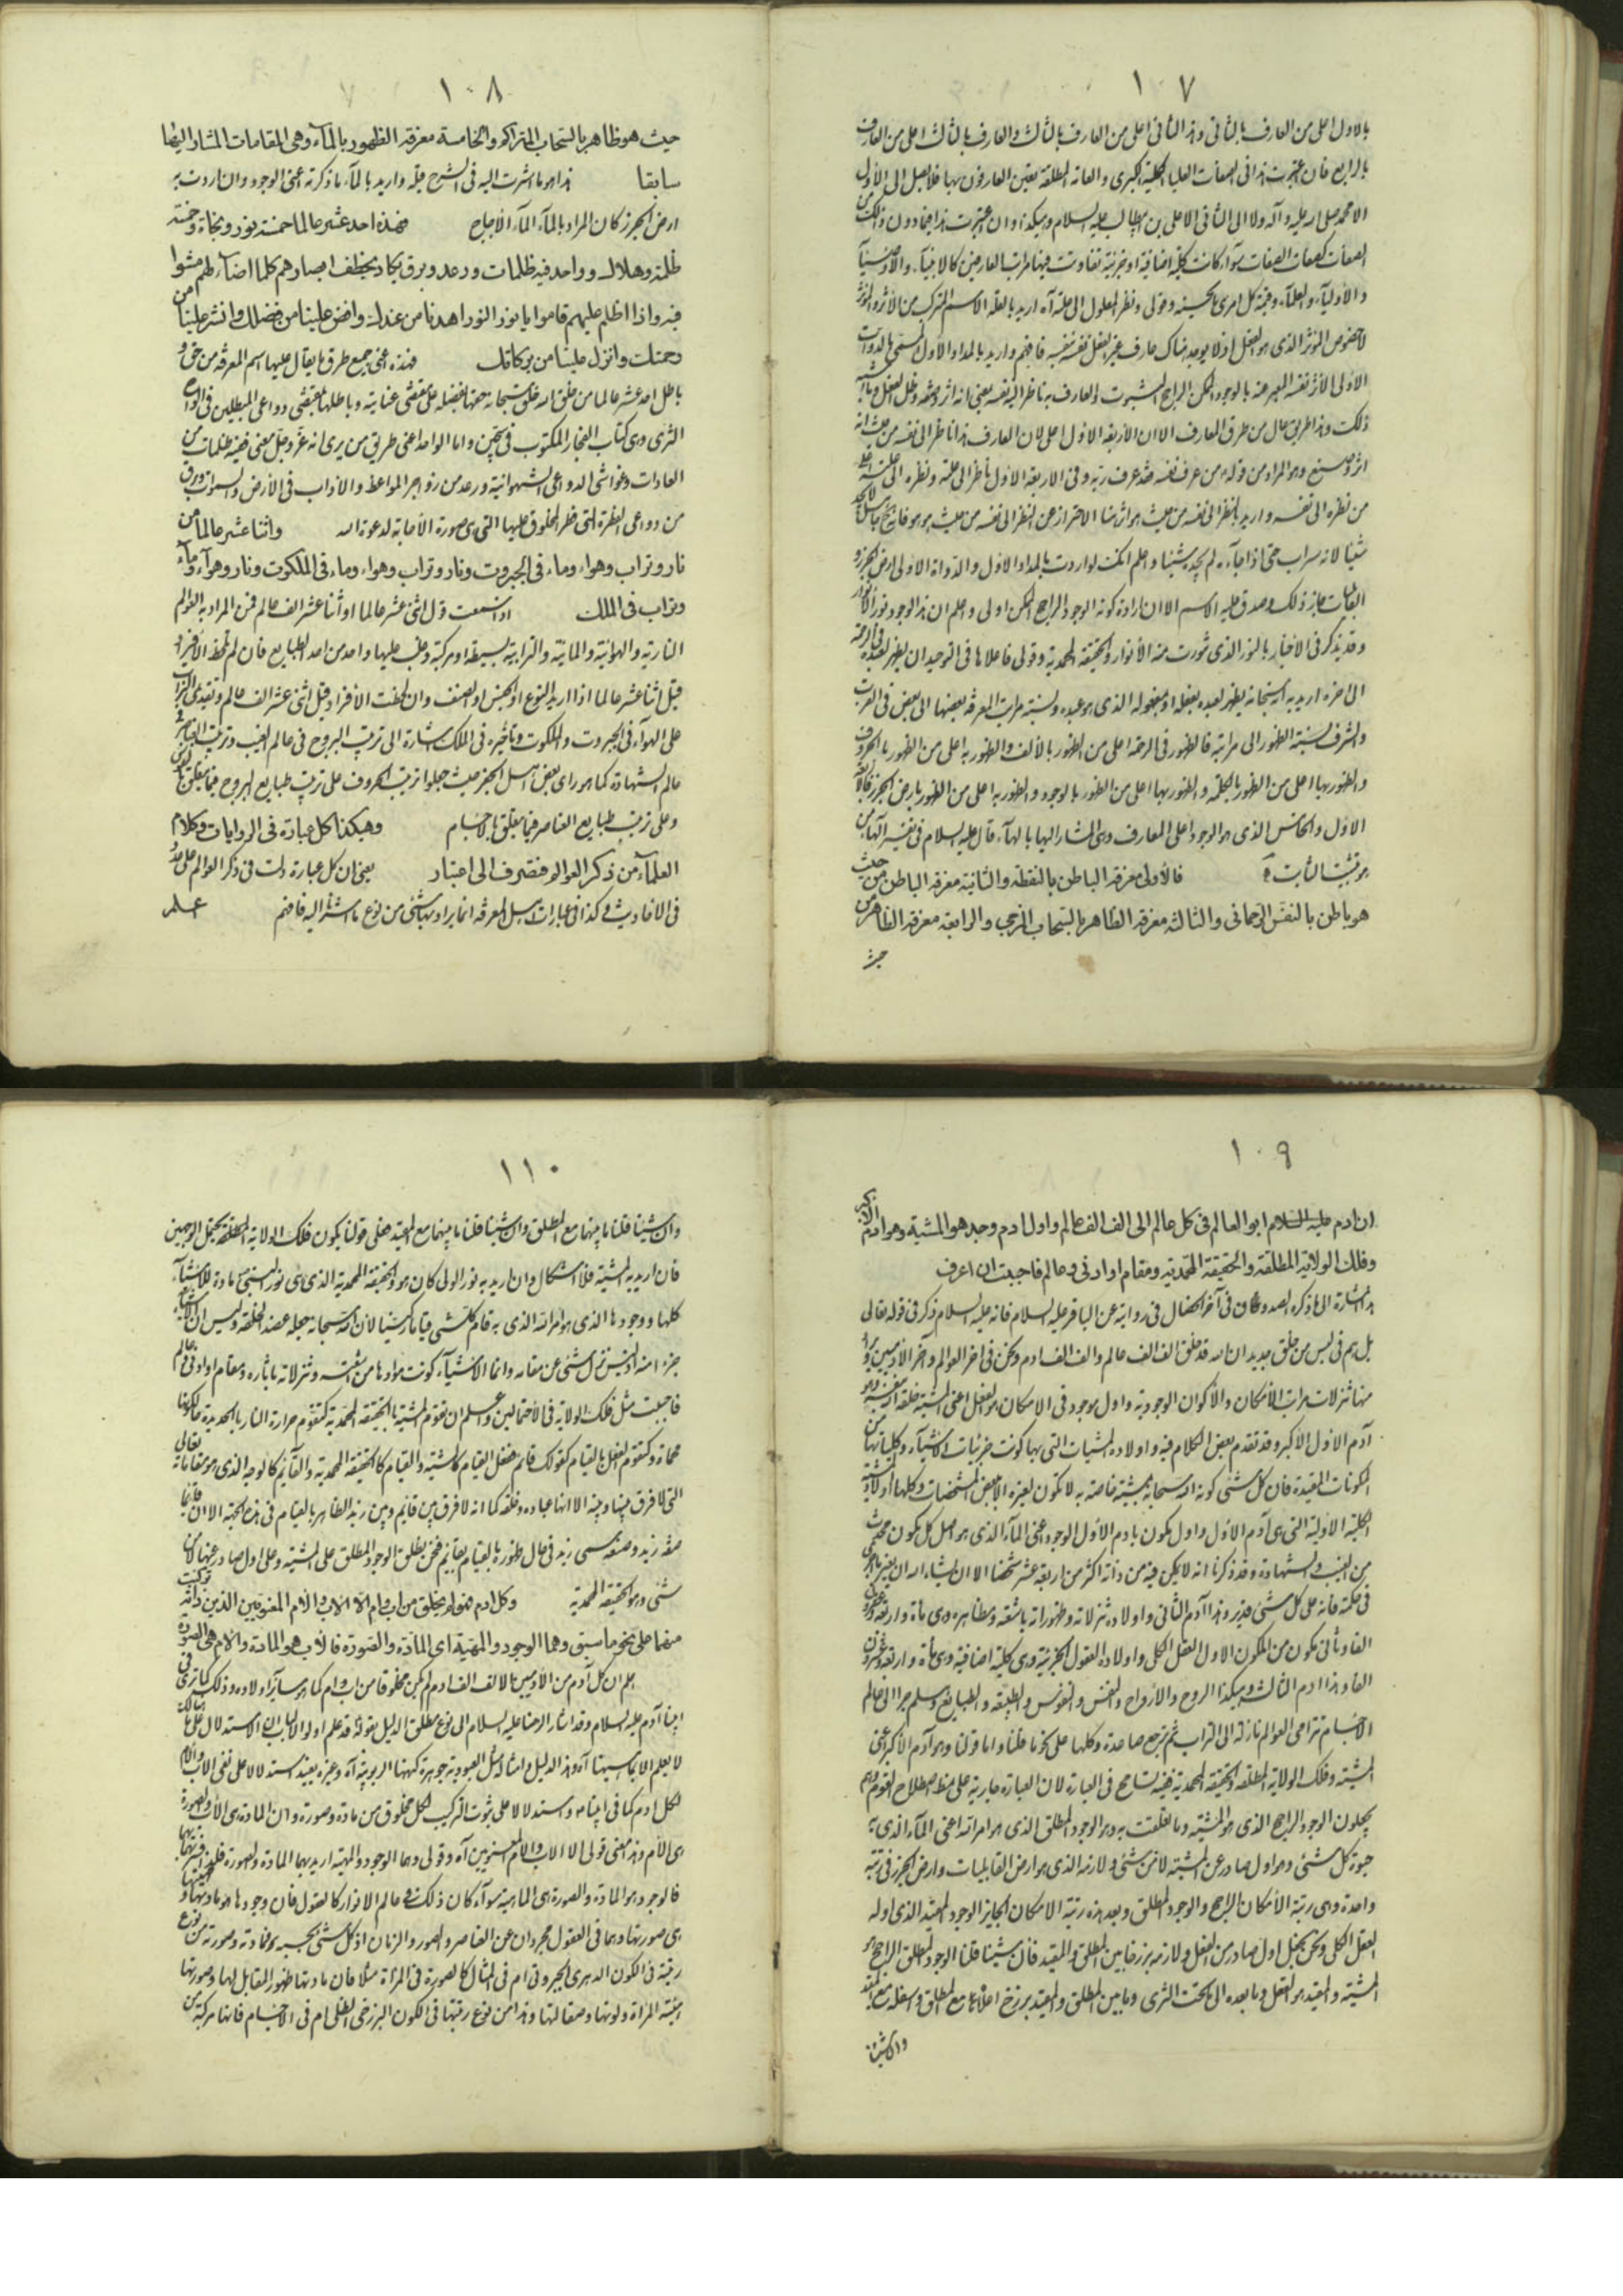 ١٠٧
بالاول اعلى من العارف بالثانى وهذا الثانى اعلى من العارف بالثالث والعارف بالثالث اعلى من العارف
بالرابع فان عبرت هذا فى الصفات العليا الكلية الكبرى والعامة المطلقة تعين العارفون بها فلا يصل الى الاول
الا محمد صلى الله عليه وآله ولا الى الثانى الا على بن ابيطالب عليه السلام وهيكذا وان عبرت هذا فيما دون ذلك من
الصفات كصفات الصفات سوآء كانت كلية اضافية او جزئية تفاوتت فيها مراتب العارفين كالانبيآء والاوصيآء
والاوليآء والعلمآء وقيمة كل امرئ ما يحسنه وقولى ونظر المعلول الى علته آه اريد بالعلة الاسم المركب من الاثر والمؤثر
الاولى الاثر نفسه المعبر عنه بالوجود الممكن الراجح الثبوت والعارف به ناظر الى نفسه يعنى انه اثر
ذلك وهذا طريق مال من طرق العارف الا ان الاربعة الاول اعلى لان العارف هنا ناظر الى نفسه من حيث انه
اثر وصنع وهو المراد من قوله من عرف نفسه فقد عرف ربه وفى الاربعة الاول ناظر الى علته ونظره الى علته اعلى
من نظره الى نفسه واريد بالنظر الى نفسه من حيث هو اثر هنا الاحتراز عن النظر الى نفسه من حيث هو هو
شيئا لانه سراب حتى اذا جآءه لم يجده شيئا واعلم انك لو اردت بالمداد الاول والدواة الاولى ارض الجرز و
القابليات جاز ذلك وصدق عليه الاسم الا ان ارادة كونه الوجود الراجح الممكن اولى واعلم ان هذا الوجود نور الانوار
وقد يذكر فى الاخبار بالنور الذى نورت منه الانوار والحقيقة المحمدية وقولى فاعلاها فى التوحيد ان يظهر لعبده فى الرحمة
الى اخره اريد به انه سبحانه يظهر لعبده بفعله او مفعوله الذى هو عبده ونسبة مراتب المعرفة بعضها الى بعض فى القرب
والشرف نسبة الظهور الى مراتبه فالظهور فى الرحمة اعلى من الظهور بالالف والظهور به اعلى من الظهور بالحروف
والظهور بها اعلى من الظهور بالكلمة والظهور بها اعلى من الظهور بالوجود والظهور به اعلى من الظهور بارض الجرز
الاول والخامس الذى هو الوجود اعلى المعارف وهى المشار اليها بالهآء قال عليه السلام فى تفسير الهآء من
هو تثبيت الثابت فالاولى معرفة الباطن بالنقطة والثانية معرفة الباطن من حيث
هو باطن بالنفس الرحمانى والثالثة معرفة الظاهر بالسحاب المزجى والرابعة معرفة الظاهر من
حيث
١٠٨
حيث هو ظاهر بالسحاب المتراكم والخامسة معرفة الظهور بالمآء وهى المقامات المشار اليها
سابقا هذا هو ما اشرت اليه فى الشرح قبله واريد بالمآء ما ذكرته اعنى الوجود وان اردت به
ارض الجرز كان المراد بالمآء المآء الاجاج فهذه احد عشر عالما خمسة نور ونجاة وخمسة
ظلمة وهلاك وواحد فيه ظلمات ورعد وبرق يكاد يخطف ابصارهم كلما اضآء لهم مشوا
فيه واذا اظلم عليهم قاموا يا نور النور اهدنا من عندك وافض علينا من فضلك وانشر علينا من
رحمتك وانزل علينا من بركاتك فهذه اعنى جميع طرق ما يقال عليها اسم المعرفة من حق و
باطل احد عشر عالما من خلق الله خلق سبحانه حقها بفضله على مقتضى عنايته وباطلها بمقتضى دواعى المبطلين
الثرى وهى كتاب الفجار المكتوب فى سجين واما الواحد اعنى طريق من يرى انه عز وجل معنى ففيه ظلمات من
العادات وغواشى الدواعى الشهوانية ورعد من زواجر المواعظ والاداب فى الارض والسموات وبرق
من دواعى الفطرة التى فطر المخلوق عليها التى هى صورة الاجابة لدعوة الله واثنا عشر عالما من
نار وتراب وهواء وماء فى الجبروت ونار وتراب وهواء وماء فى الملكوت ونار وهوآء ومآء
وتراب فى الملك اذا سمعت قول اثنى عشر عالما او اثنا عشر الف عالم فمن المراد به العوالم
النارية والهوائية والمائية والترابية بسيطة او مركبة وغلب عليها واحد من احد الطبايع فان لم تلحظ الافراد
قيل اثنا عشر عالما اذا اريد النوع او الجنس او الصنف وان لحظت الافراد قيل اثنى عشر الف عالم وتقديم التراب
على الهوآء فى الجبروت والملكوت وتأخيره فى الملك اشارة الى ترتيب البروج فى عالم الغيب وترتيب العناصر فى
عالم الشهادة كما هو راى بعض اهل الجفر حيث جعلوا ترتيب الحروف على ترتيب طبايع البروج
وعلى ترتيب طبايع العناصر فيما يتعلق بالاجسام وهيكذا كل عبارة فى الروايات وكلام
العلمآء من ذكر العوالم فتصرف الى اعتبار يعنى ان كل عبارة دلت فى ذكر العوالم على عدد
فى الاحاديث وكذا فى عبارات اهل المعرفة انما يراد بها شئ من نوع ما اشرنا اليه فافهم اعلم
١٠٩
ان ادم عليه السلام ابو العالم فى كل عالم الى الف الف عالم واول ادم وجد هو المشية وهو ادم الاكبر
وفلك الولاية المطلقة والحقيقة المحمدية ومقام او ادنى وعالم فاحببت ان اعرف
هذا اشارة الى ما ذكره الصدوق فى آخر الخصال فى رواية عن الباقر عليه السلام فانه عليه السلام ذكر فى قوله تعالى
بل هم فى لبس من خلق جديد ان الله قد خلق الف الف عالم والف الف ادم ونحن فى اخر العوالم وآخر الادميين
منها تنزلات مراتب الامكان والاكوان الوجودية واول موجود فى الامكان هو الفعل اعنى المشية خلقه الله بنفسه وهو
آدم الاول الاكبر وقد تقدم بعض الكلام فيه واولاده المشيات التى بها كونت جزئيات الاشيآء وكلياتها من
المكونات المقيدة فان كل شئ كونه الله سبحانه بمشية خاصة به لا تكون لغيره الا ببعض المشخصات وكلها اولاد المشية
الكلية الاولية التى هى آدم الاول واول مكون بادم الاول الوجود اعنى المآء الذى هو اصل كل مكون محدث
من الغيب والشهادة وقد ذكرنا انه لا يمكن فيه من ذاته اكثر من اربعة عشر شخصا الا ان يشاء الله ان يغير
فى حكمته فانه على كل شئ قدير وهذا آدم الثانى واولاده تنزلاته وظهوراته باشعته ومظاهره وهى مأة واربعة وعشرون
الفا وثانى مكون من المكون الاول العقل الكلى واولاده العقول الجزئية وهى كلية اضافية وهى مأة واربعة وعشرون
الفا وهذا ادم الثالث وهيكذا الروح والارواح والنفس والنفوس والطبيعة والطبايع وهلم جرا الى عالم
الاجسام تترامى العوالم نازلة الى التراب ثم ترجع صاعدة وكلها على نحو ما قلنا واما قولنا وهو آدم الاكبر اعنى
المشية وفلك الولاية المطلقة والحقيقة المحمدية ففيه تسامح فى العبارة لان العبارة جارية على نمط اصطلاح القوم وهم
يجعلون الوجود الراجح الذى هو المشية وما تعلقت به وهو الوجود المطلق الذى هو امر الله اعنى المآء الذى به
حيوة كل شئ وهو اول صادر عن المشية لا من شئ ولازمه الذى هو ارض القابليات وارض الجرز فى رتبة
واحدة وهى رتبة الامكان الراجح والوجود المطلق وبعد هذه رتبة الامكان الجايز الوجود المقيد الذى اوله
العقل الكلى ونحن نجعل اول صادر من الفعل ولازمه برزخا بين المطلق والمقيد فان شئنا قلنا الوجود المطلق الراجح هو
المشية والمقيد هو العقل وما بعده الى ما تحت الثرى وما بين المطلق والمقيد برزخ اعلاه مع المطلق واسفله مع المقيد
وان شئنا
١١٠
وان شئنا قلنا ما بينهما مع المطلق وان شئنا قلنا ما بينهما مع المقيد فعلى قولنا يكون فلك الولاية المطلقة يحتمل الوجهين
فان اريد به المشية فلا اشكال وان اريد به نور الولى كان هو والحقيقة المحمدية الذى هى نور النبى مادة للاشيآء
كلها ووجودها الذى هو امر الله الذى به قام كل شئ قياما ركنيا لان الله سبحانه جعله عضد الخلقه وليس ان الاشيآء
جزء منه اذ ليس ينزل شئ عن مقامه وانما الاشيآء كونت موادها من اشعته وتنزلاته باثاره ومقام او ادنى وعالم
فاحببت مثل فلك الولاية فى الاحتمالين واعلم ان تقوم المشية بالحقيقة المحمدية كتقوم حرارة النار بالحديدة
محماة وكتقوم الفعل بالقيام كقولك قائم ففعل القيام كالمشية والقيام كالحقيقة المحمدية والقائم كالوجه الذى هو مقاماته تعالى
التى لا فرق بينها وبينه الا انها عباده وخلقه كما انه لا فرق بين قائم وبين زيد الظاهر بالقيام فى هذه الجهة الا ان قائما
صفة زيد وصفة يسمى زيد فى حال ظهوره بالقيام بقائم فنحن نطلق الوجود المطلق على المشية وعلى اول صادر عنها لا من
شئ وهو الحقيقة المحمدية وكل ادم فهو لم يخلق من اب وام الا الاب والام المعنويين الذين تركبت ذاته
منهما على نحو ما سبق وهما الوجود والمهية اى المادة والصورة فالاب هو المادة والام هى الصورة
اعلم ان كل آدم من الادميين الالف الف ادم لم يكن مخلوقا من اب وام كما هو سآئر اولاده وذلك كما ترى فى
ابينا آدم عليه السلام وقد اشار الرضا عليه السلام الى نوع مطلق الدليل بقوله قد علم اولوا الالباب ان الاستدلال على ما هنالك
لا يعلم الا بما هيهنا آه وهذا الدليل وامثاله مثل العبودية جوهرة كنهها الربوبية آه وغيره يفيد استدلالا على نفى الاب والام
لكل ادم كما فى ابينا واستدلالا على ثبوت التركيب لكل مخلوق من مادة وصورة وان المادة هى الاب والصورة
هى الام وهذا معنى قولى الا الاب والام المعنويين آه وقولى وهما الوجود والمهية اريد بهما المادة والصورة
فالوجود هو المادة والصورة هى الماهية سوآء كان ذلك فى عالم الانوار كالعقول فان وجودها هو مادتها وماهيتها
هى صورتها وهما فى العقول مجردان عن العناصر والصور والزمان اذ كل شئ بحسبه فمادته وصورته من نوع
رتبته فى الكون الدهرى الجبروتى ام فى المثال كالصورة فى المرآة مثلا فان مادتها ظهور المقابل لها وصورتها
هيئة المرآة ولونها وصقالتها وهذا من نوع رتبتها فى الكون البرزخى الظلى ام فى الاجسام فانها مركبة من